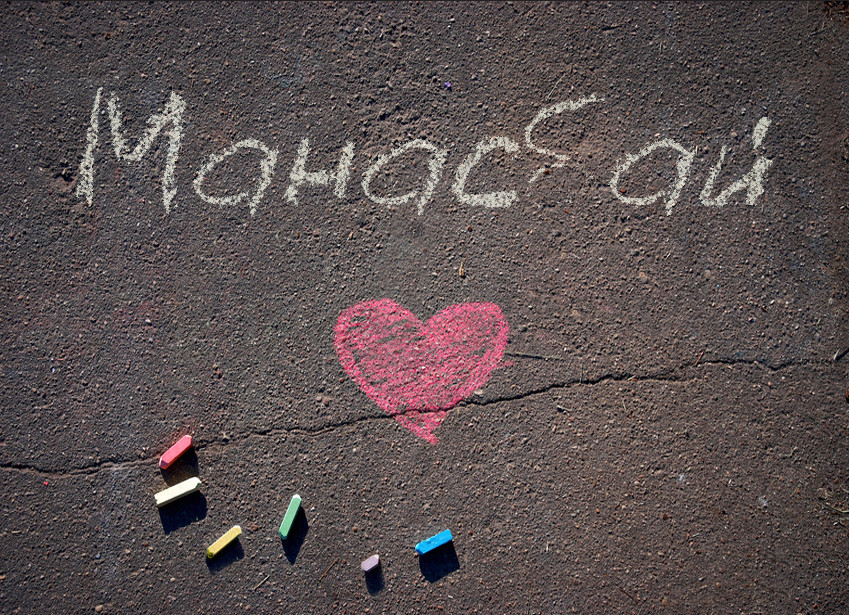 Манасбай